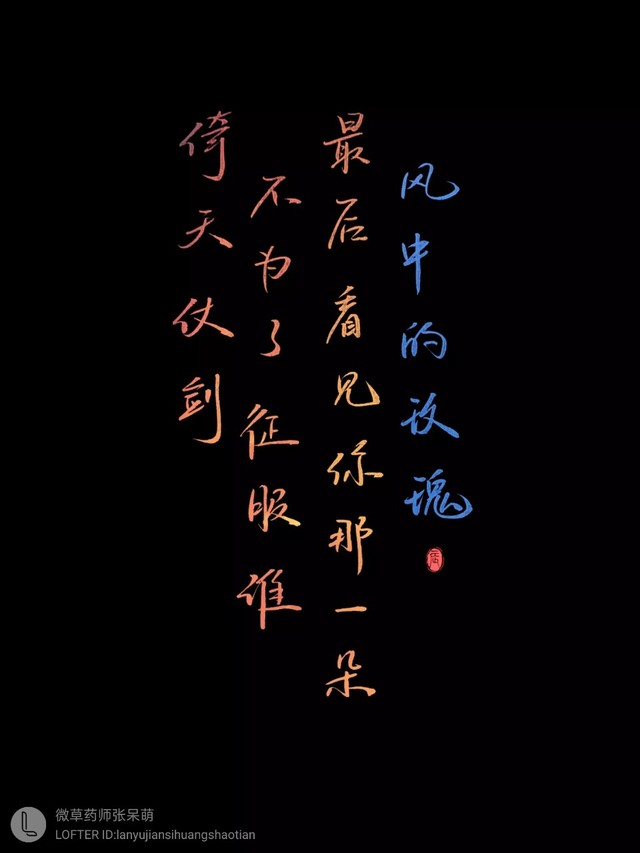 倚天仗剑
不为了征服谁
最后看见你那一朵
风中的玫瑰
微草药师张呆萌
LOFTER ID:lanyujiansihuangshaotian